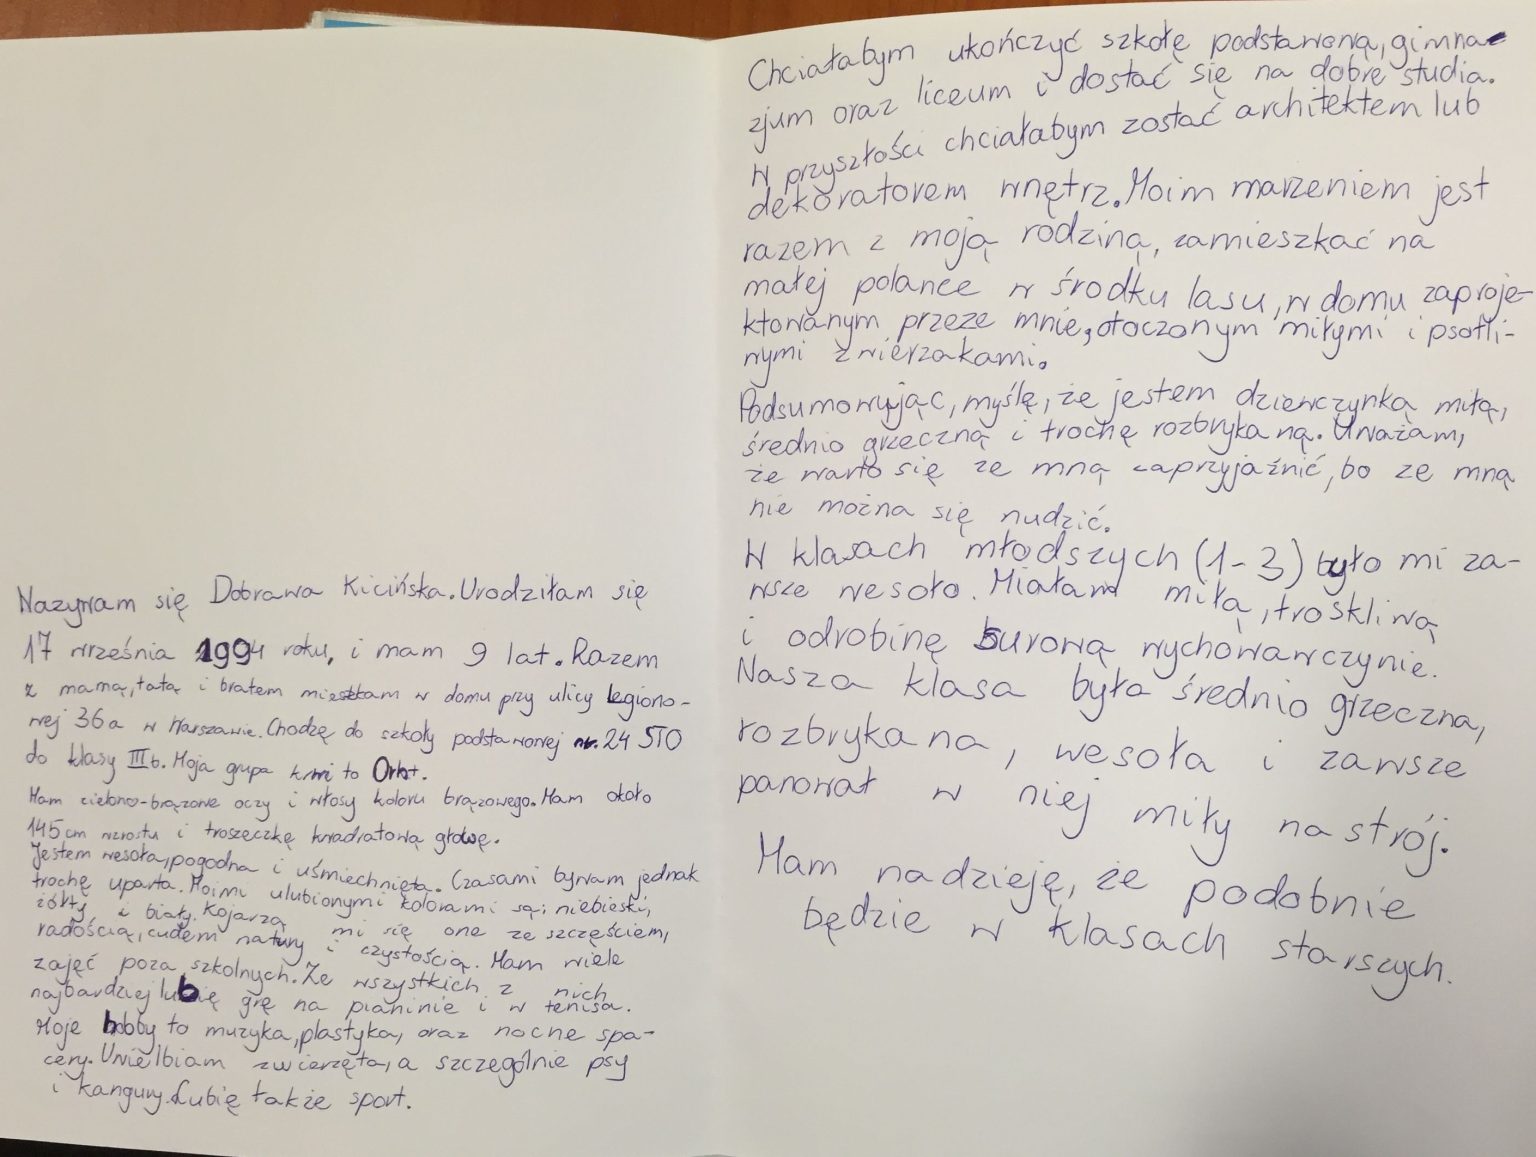 Nazywam się Dobrawa Kicińska. Urodziłam się
17 września 1994 roku, i mam 9 lat. Razem
z mamą, tatą i bratem mieszkam w domu przy ulicy Legiono-
wej 36a w Warszawie. Chodzę do szkoły podstawowej nr. 24 STO
do klasy III b. Moja grupa krwi to 0rh+.
Mam zielono-brązowe oczy i włosy koloru brązowego. Mam około
145 cm wzrostu i troszeczkę kwadratową głowę.
Jestem wesoła, pogodna i uśmiechnięta. Czasami bywam jednak
trochę uparta. Moimi ulubionymi kolorami są: niebieski,
żółty i biały. Kojarzą mi się one ze szczęściem,
radością, cudem natury i czystością. Mam wiele
zajęć poza szkolnych. Ze wszystkich z nich
najbardziej lubię grę na pianinie i w tenisa.
Moje hobby to muzyka, plastyka, oraz nocne spa-
cery. Uwielbiam zwierzęta, a szczególnie psy
i kangury. Lubię także sport.
Chciałabym ukończyć szkołę podstawową, gimna-
zjum oraz liceum i dostać się na dobre studia.
W przyszłości chciałabym zostać architektem lub
dekoratorem wnętrz. Moim marzeniem jest
razem z moją rodziną, zamieszkać na
małej polance w środku lasu, w domu zaproje-
ktowanym przeze mnie, otoczonym miłymi i psotli-
wymi zwierzakami.
Podsumowując, myślę, że jestem dziewczynką miłą,
średnio grzeczną i trochę rozbrykaną. Uważam,
że warto się ze mną zaprzyjaźnić, bo ze mną
nie można się nudzić.
W klasach młodszych (1-3) było mi za-
wsze wesoło. Miałam miłą, troskliwą
i odrobinę surową wychowawczynie.
Nasza klasa była średnio grzeczna,
rozbrykana, wesoła i zawsze
panował w niej miły nastrój.
Mam nadzieję, że podobnie
będzie w klasach starszych.